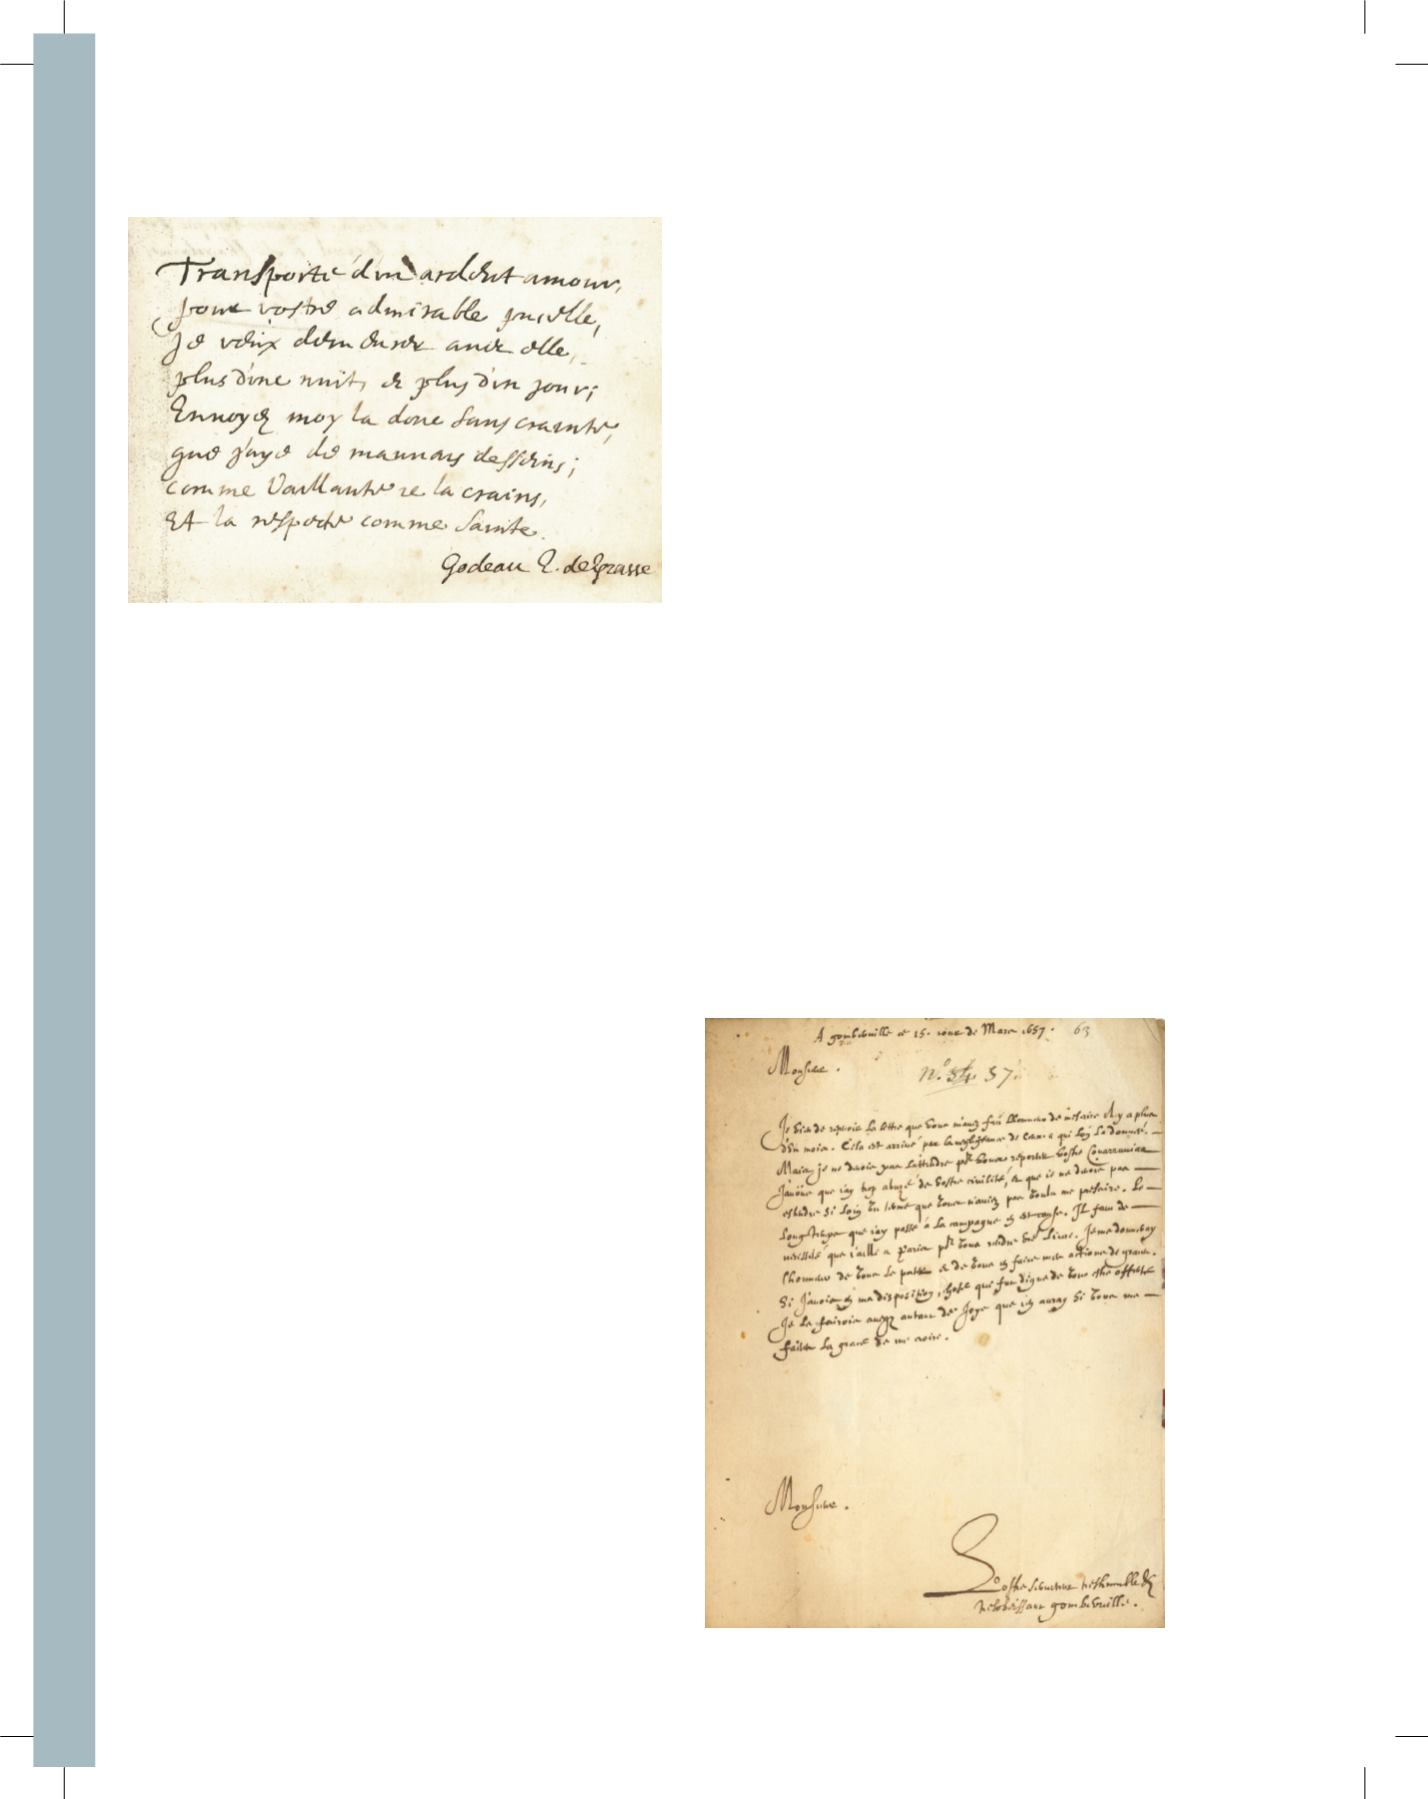 Transporté d'un ardent amour,
pour vostre admirable pucelle,
Je veux demeurer avec elle,
plus d'une nuit, & plus d'un jour;
Envoyez moy la donc sans crainte,
que j'aye de mauvais desseins;
comme Vaillante je la crains,
Et la respecte comme Sainte.
Godeau E. de Grasse
A gomberville ce 15. jour de Mars 1657. 63
Monsieur.
n.o 54 57.
Je viens de recevoir la lettre que vous m'avez fait l'honneur de m'escrire il y a plus
d'un mois. Cela est arrivé par la negligence de ceux a qui lon la donnée.
Mais je ne devois pas l'attendre pr vous reporter vostre
J'avoüe que j'ay trop abuzé de vostre civilité, & que je ne devois pas
estendre si loin un terme que vous n'aviez pas voulu me prescrire. Le
long temps que j'ay passé à la campagne en est cause. Il faut de
necessité que j'aille a Paris pr vous rendre vos Livres. Je me donneray
l'honneur de vous le porter & de vous en faire mes actions de graces.
Si j'avois en ma disposition, chose qui fut digne de vous estre offerte
Je le ferois avecq autant de joye que j'en auray si vous me
faites la grace de me croire.
Monsieur.
Vostre serviteur tres humble &
tres obeissant gomberville.